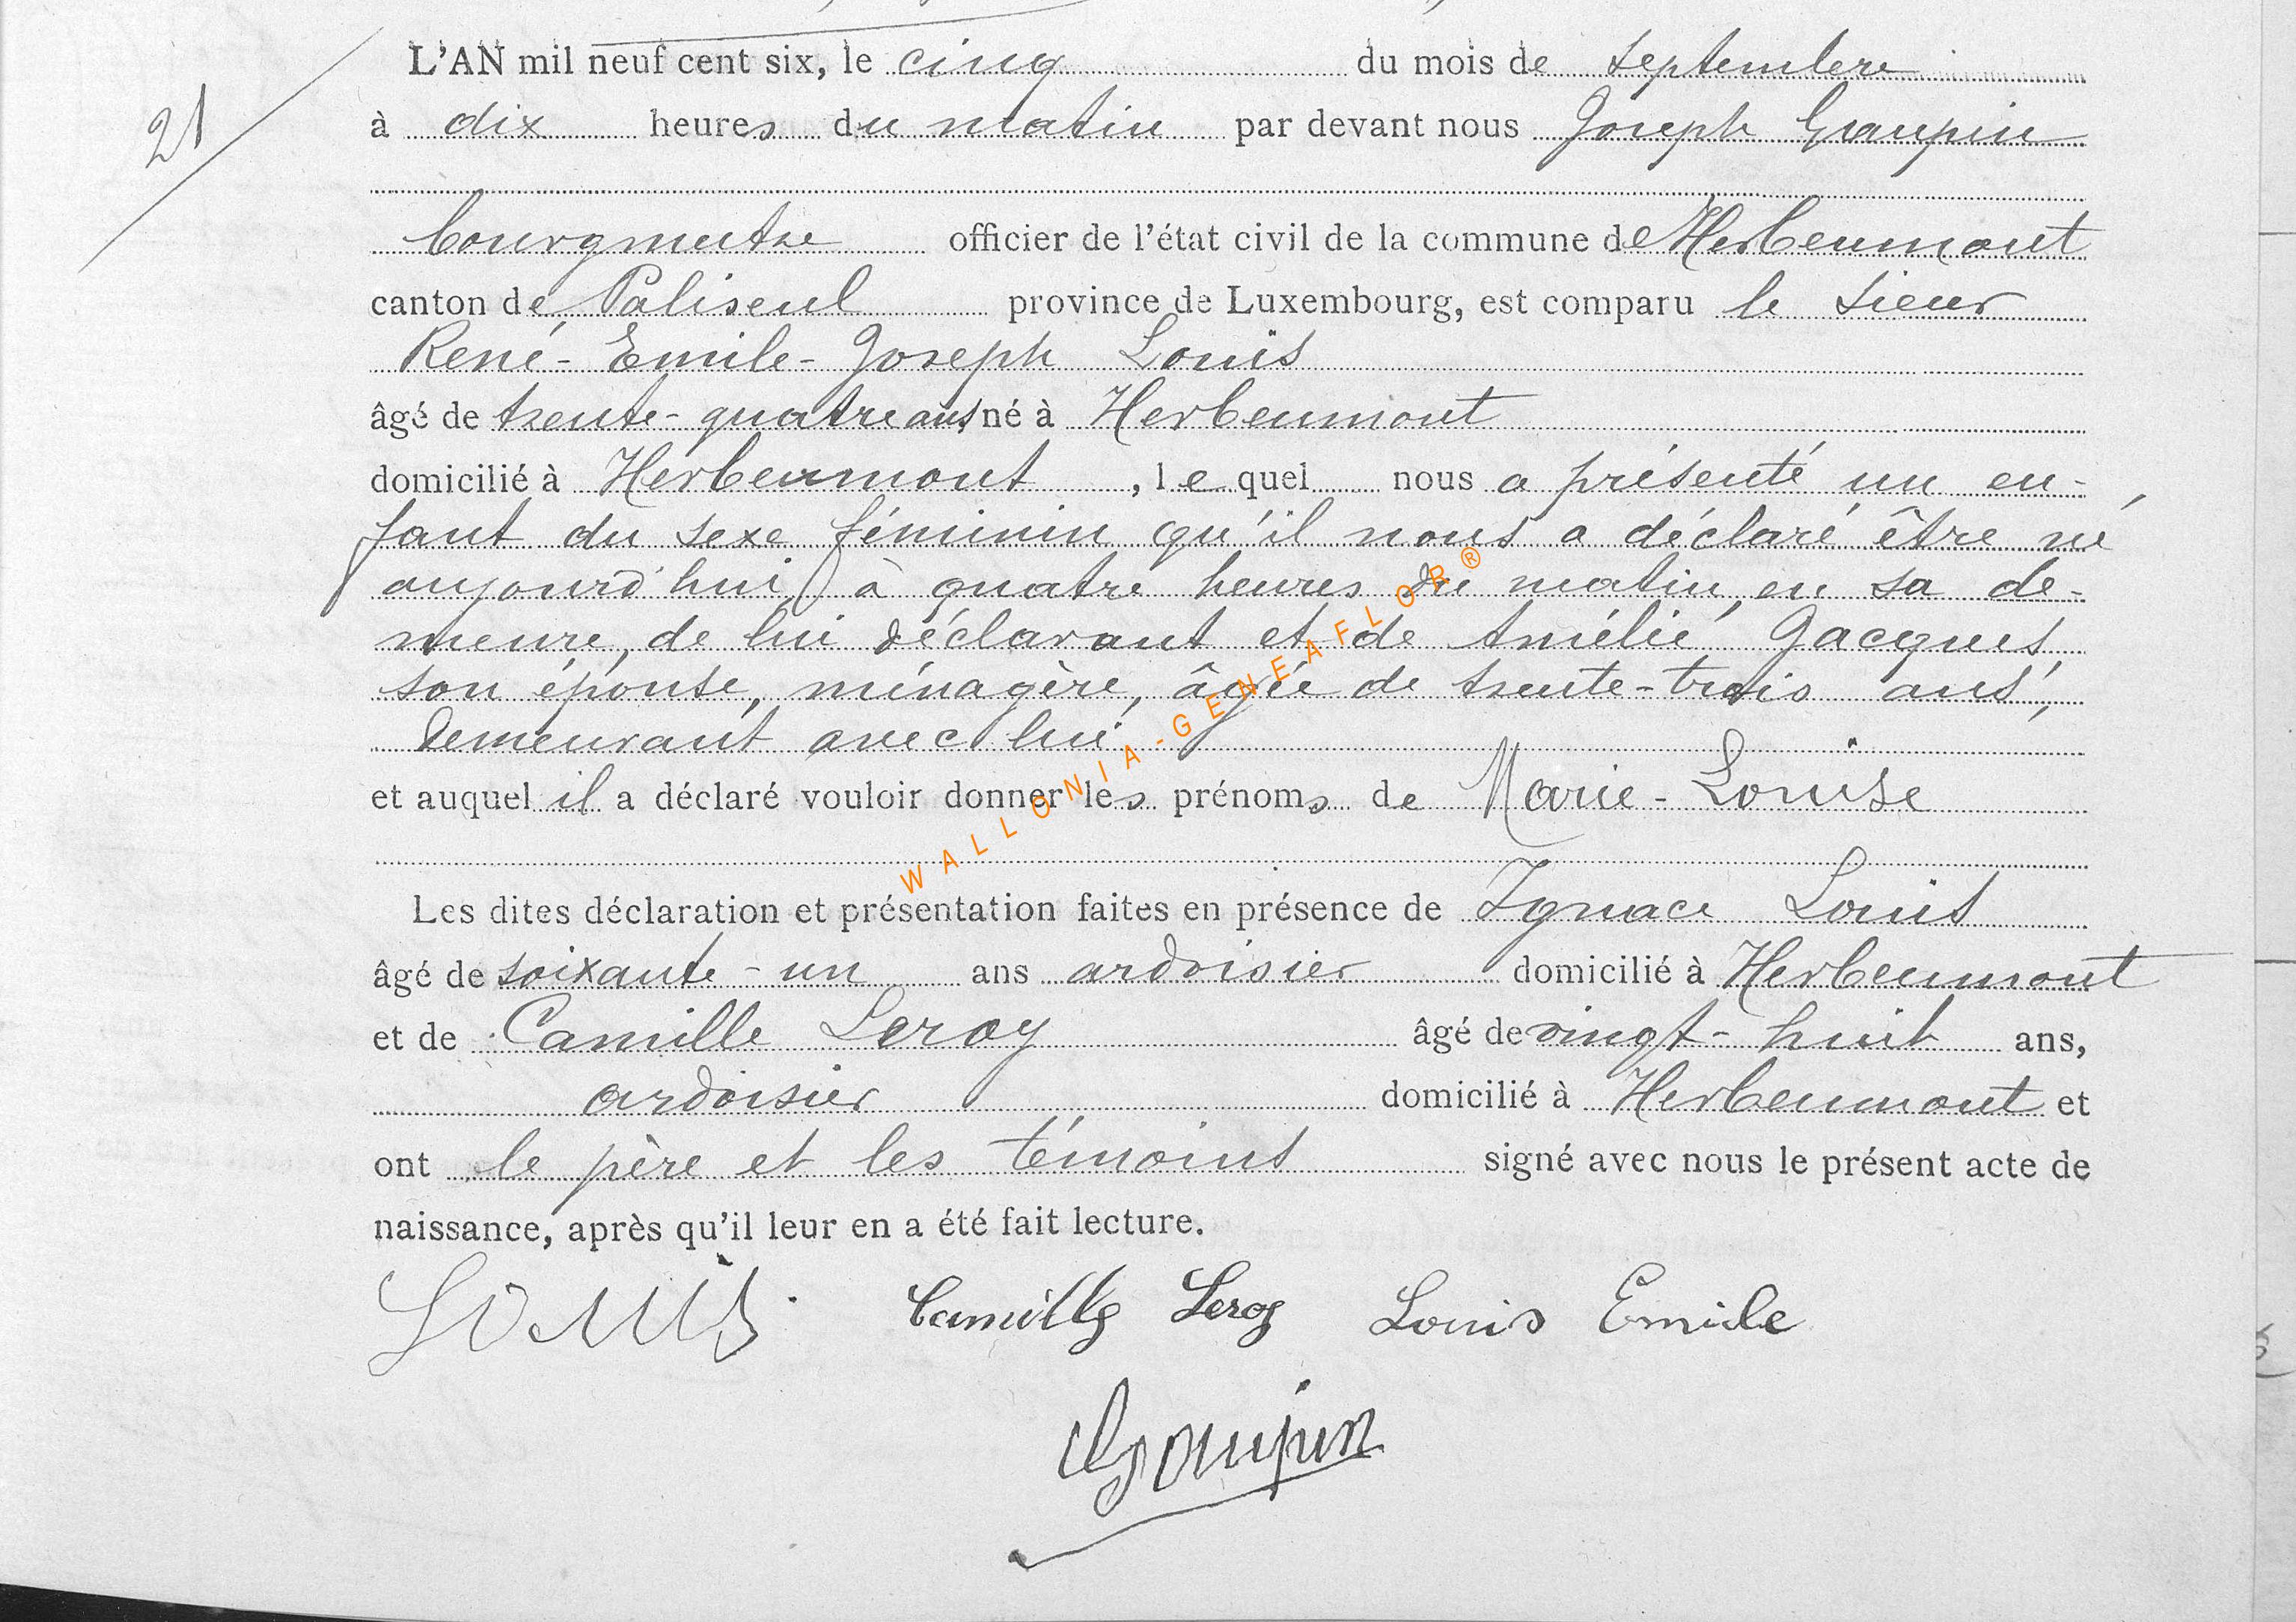 21
L'AN mil neuf cent six, le cinq du mois de septembre
à dix heures du matin par devant nous Joseph Graupin
bourgmestre officier de l'état civil de la commune de Herbeumont
canton de Paliseul province de Luxembourg, est comparu le sieur
René-Emile-Joseph Louis
âgé de trente-quatre ans, né à Herbeumont
domicilié à Herbeumont, lequel nous a présenté un en-
fant du sexe féminin qu'il nous a déclaré être né
aujourd'hui, à quatre heures du matin, en sa de-
meure, de lui déclarant et de Amélie Jacques,
son épouse, ménagère, âgée de trente-trois ans,
demeurant avec lui
et auquel il a déclaré vouloir donner les prénoms de Marie-Louise
Les dites déclaration et présentation faites en présence de Ignace Louis
âgé de soixante-un ans ardoisier domicilié à Herbeumont
et de Camille Leroy âgé de vingt-huit ans,
ardoisier domicilié à Herbeumont et
ont le père et les témoins signé avec nous le présent acte de
naissance, après qu'il leur en a été fait lecture.
Louis. Camille Leroy Louis Emile
Graupin
WALLONIA-GENEAFLOR®